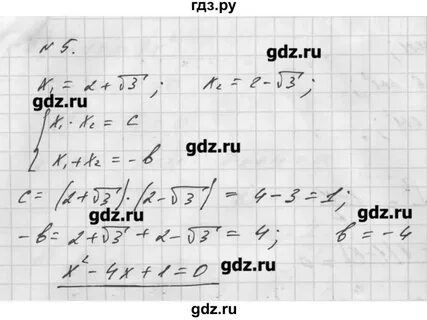 гдз.рф
№ 5.
gdz.ru
x₁ = 2 + √3; x₂ = 2 - √3;
gdz.ru gdz.ru
{ x₁ · x₂ = c
x₁ + x₂ = -b
gdz.ru
c = (2 + √3) · (2 - √3) = 4 - 3 = 1;
gdz.ru
-b = 2 + √3 + 2 - √3 = 4; b = -4
x² - 4x + 1 = 0
gdz.ru gdz.ru